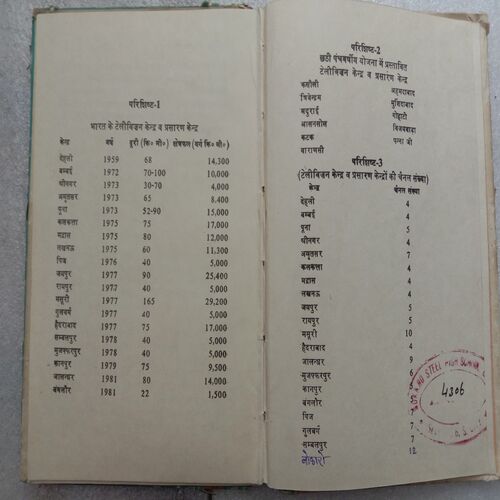 परिशिष्ट-1
भारत के टेलीविज़न केन्द्र व प्रसारण केन्द्र
केन्द्र वर्ष दूरी (कि० मी०) क्षेत्रफल (वर्ग कि० मी०)
देहली 1959 68 14,300
बम्बई 1972 70-100 10,000
श्रीनगर 1973 30-70 4,000
अमृतसर 1973 65 8,400
पूना 1973 52-90 15,000
कलकत्ता 1975 75 17,000
मद्रास 1975 80 12,000
लखनऊ 1975 60 11,300
पिज 1976 40 5,000
जयपुर 1977 90 25,400
रायपुर 1977 40 5,000
मसूरी 1977 165 29,200
गुलबर्ग 1977 40 5,000
हैदराबाद 1977 75 17,000
सम्बलपुर 1978 40 5,000
मुजफ्फरपुर 1978 40 5,000
कानपुर 1979 75 9,500
जालन्धर 1981 80 14,000
बंगलौर 1981 22 1,500
परिशिष्ट-2
छठी पंचवर्षीय योजना में प्रस्तावित
टेलीविज़न केन्द्र व प्रसारण केन्द्र
कसौली अहमदाबाद
त्रिवेन्द्रम मुर्शिदाबाद
मदुराई गोहाटी
आसनसोल विजयवाड़ा
कटक पणजी
वाराणसी
परिशिष्ट-3
(टेलीविज़न केन्द्र व प्रसारण केन्द्रों की चैनल संख्या)
केन्द्र चैनल संख्या
देहली 4
बम्बई 4
पूना 5
श्रीनगर 4
अमृतसर 7
कलकत्ता 4
मद्रास 4
लखनऊ 4
जयपुर 5
रायपुर 5
मसूरी 10
हैदराबाद 4
जालन्धर 9
मुजफ्फरपुर 6
कानपुर
बंगलौर
पिज
गुलबर्ग 7
सम्बलपुर 7
बोकारो 12
STEEL HIGH SCHOOL
4306